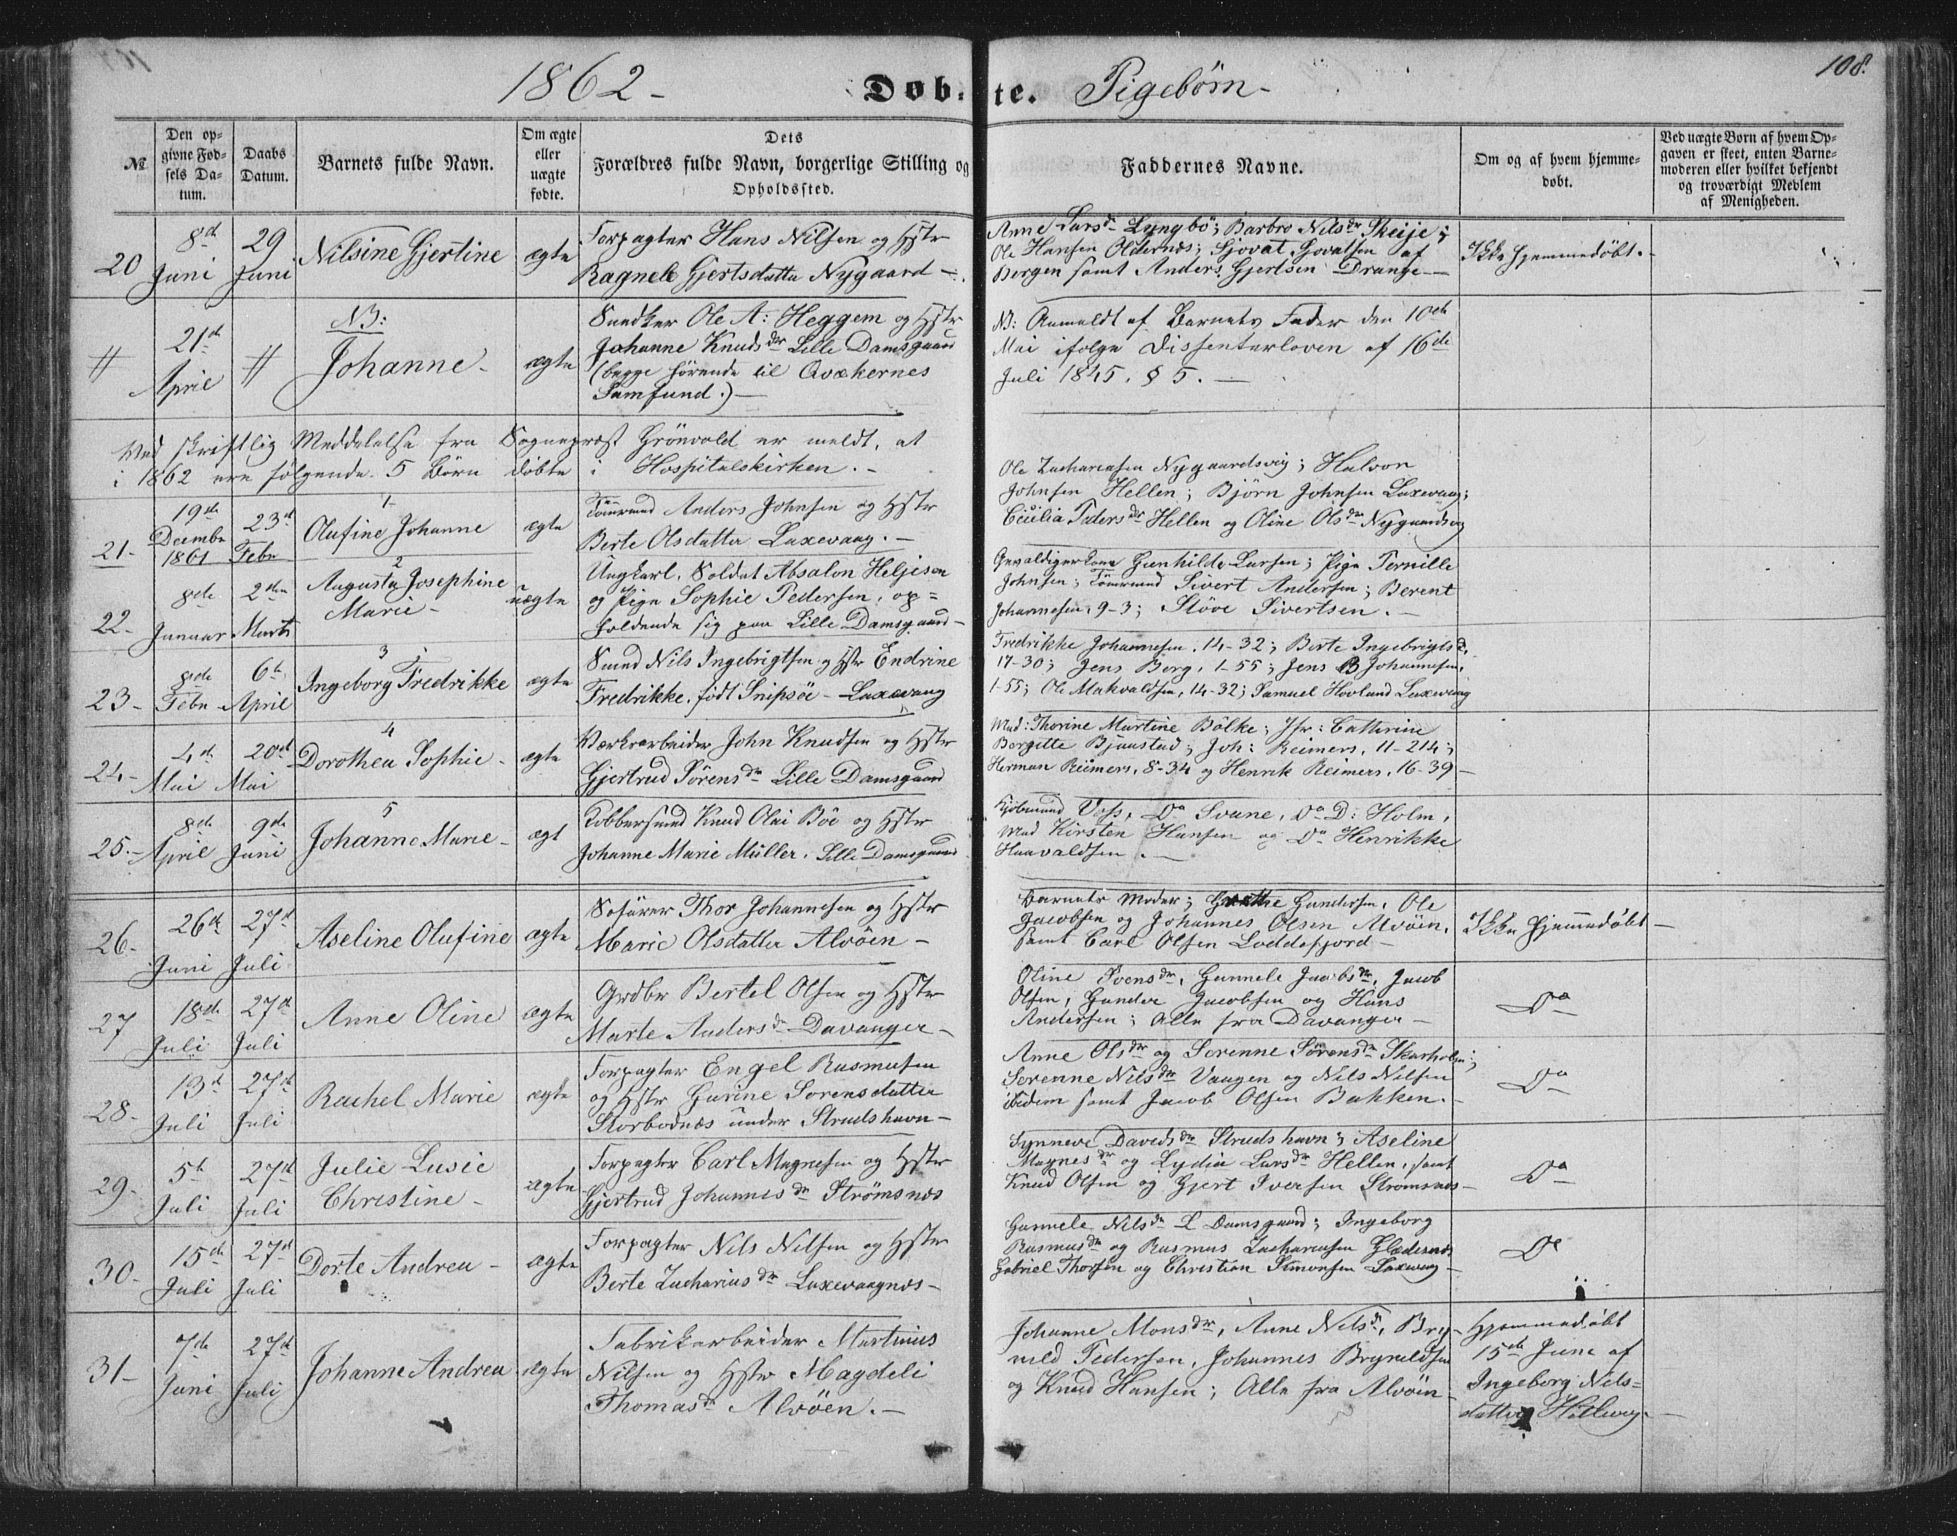 108.
1862 - Døbte. Pigebørn -
№
Den op-
givne Fød-
sels Da-
tum.
Daabs
Datum.
Barnets fulde Navn.
Om ægte
eller
uægte
fødte.
Dets
Forældres fulde Navn, borgerlige Stilling og
Opholdssted.
Faddernes Navne.
Om og af hvem hjemme-
døbt.
Ved uægte Børn af hvem Op-
gaven er skeet, enten Barne-
moderen eller hvilket bekjendt
og troværdigt Medlem
af Menigheden.
20 8de Juni 29 Juni Nilsine Gjertine ægte
Forpagter Hans Nilsen og Hstr
Ragnele Gjertsdatter Nygaard -
Anne Larsdr Lyngbö; Barbro Nilsdr Skeije;
Ole Hansen Oldernæs; Gjovat Govatsen af
Bergen samt Anders Gjertsen Drange -
Ikke hjemmedöbt. -
# 21de April # NB:
Johanne - ægte
Snedker Ole A: Heggem og Hstr
Johanne Knudsdr Lille Damsgaard
(begge hörende til Qvækernes
Samfund.) -
NB: Anmeldt af Barnets Fader den 10de
Mai ifølge Dissenterloven af 16de
Juli 1845. § 5. -
Ved skriftlig Meddelelse fra Sognepræst Grönvold er meldt, at
i 1862 ere følgende 5 Börn döbte i Hospitalskirken. -
21- 19de Decembr 1861 23de Febr 1
Olufine Johanne ægte
Tömrmd Anders Johnsen og Hstr
Berte Olsdatter Laxevaag. -
Ole Zachariasen Nygaardsvig; Halvor
Johnsen Hellen; Björn Johnsen Laxevaag;
Cecilia Pedersdr Hellen og Oline Olsdr Nygaardsvig
22- 8de Januar 2den Marts 2
Augusta Josephine
Marie - uægte
Ungkarl, Soldat Absalon Heljesen
og Pige Sophie Pedersen, op=
holdende sig paa Lille Damsgaard -
Gevaldigerkone Gunhilde Larsen; Pige Pernille
Johnsen; Tömrmd Sivert Andersen; Berent
Johannesen, 9-3; Stöve Sivertsen. -
23- 8de Febr 6te April 3
Ingeborg Fredrikke ægte
Smed Nils Ingebrigtsen og Hstr Endrine
Fredrikke, födt Snipsöe - Laxevaag
Fredrikke Johannesen, 14-32; Berte Ingebrigtsd.
17-30; Jens Berg, 1-55; Jens B Johannesen,
1-55; Ole Makvaldsen, 14-32; Samuel Hovland Laxevaag
24- 4de Mai 20de Mai 4
Dorothea Sophie - ægte
Værksarbeider John Knudsen og Hstr
Gjertrud Sörensdr Lille Damsgaard
Mad: Thorine Martine Bölke; Jfr: Cathrine
Borgitte Bjaanstad; Joh: Reimers, 11-214;
Herman Reimers, 8-34 og Henrik Reimers, 16-39 -
25.- 8de April 9de Juni 5
Johanne Marie - ægt
Kobbersmed Knud Olai Böe og Hstr
Johanne Marie Müller. Lille Damsgaard
Kjöbmand Voss, Do Svane, Do D: Holm,
Mad Kirsten Hansen og Do Henrikke
Haavaldsen. -
26- 26de Juni 27de Juli Aseline Olufine ægte
Söfarer Thor Johannesen og Hstr
Marie Olsdatter Alvöen -
Barnets Moder; Grethe Gundersen, Ole
Jacobsen og Johannes Olsen Alvöen,
samt Carl Olsen Loddefjord -
Ikke hjemmedöbt -
27 18de Juli 27de Juli Anne Oline ægte
Grdbr Bertel Olsen og Hstr
Marte Andersdr Davanger -
Oline Svensdr, Gunnele Jacobsdr, Jacob
Olsen, Gunder Jacobsen og Hans
Andersen; Alle fra Davanger -
Do
28- 13de Juli 27de Juli Rachel Marie ægte
Forpagter Engel Rasmusen
og Hstr Gurine Sorensdatter
Storbodnæs under Strudshavn -
Anne Olsdr og Sorenne Sörensdr Skarholm;
Sorenne Nilsdr Vaagen og Nils Nilsen
ibidem samt Jacob Olsen Bakken. -
Do
29- 5te Juli 27de Juli Julie Lusie
Christine - ægte
Forpagter Carl Magnesen og Hstr
Gjertrud Johannesdr Strömsnæs
Synneve Davidsdr Strudshavn; Aseline
Magnesdr og Lydia Larsdr Hellen, samt
Knud Olsen og Gjert Iversen Stromsnæs -
Do
30- 15de Juli 27de Juli Dorte Andrea - ægte
Forpagter Nils Nilsen og Hstr
Berte Zachariasdr Laxevaagnæs -
Gunnele Nilsdr L Damsgaard; Ingeborg
Rasmusdr og Rasmus Zachariasen Gladesnæs
Gabriel Thorsen og Christian Simonsen Laxevaag -
Do
31- 7de Juni 27de Juli Johanne Andrea ægte
Fabrikarbeider Martinus
Nilsen og Hstr Magdeli
Thomasdr Alvöen. -
Johanne Monsdr, Anne Nilsd, Bry-
nild Pedersen, Johannes Brynildsen
og Knud Hansen; Alle fra Alvöen -
Hjemmedöbt
15de June af
Ingeborg Nils=
datter Hellevig -